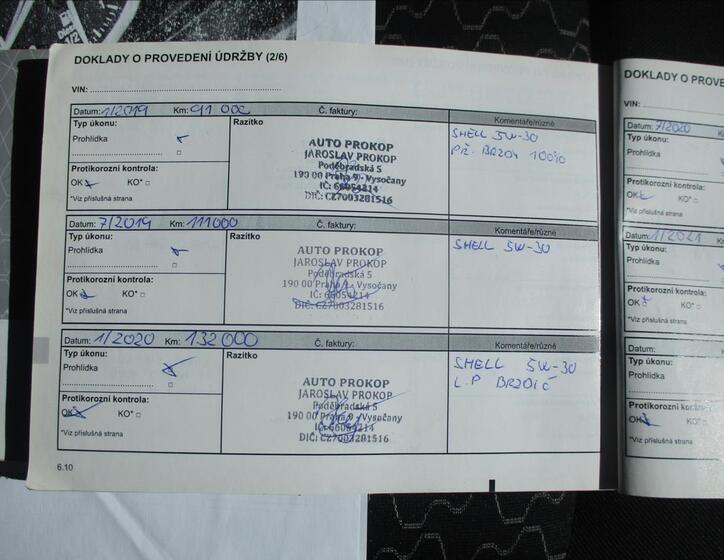 DOKLADY O PROVEDENÍ ÚDRŽBY (2/6)
VIN:
Datum: 1/2019 Km: 91 000 Č. faktury: Komentáře/různé
Typ úkonu: Razítko
Prohlídka
Protikorozní kontrola:
OK KO*
*Viz příslušná strana
AUTO PROKOP
JAROSLAV PROKOP
Poděbradská 5
190 00 Praha 9 - Vysočany
IČ: 66054214
DIČ: CZ7003281516
SHELL 5W-30
PŘ. BRZDY 100%
Datum: 7/2019 Km: 111000 Č. faktury: Komentáře/různé
Typ úkonu: Razítko
Prohlídka
Protikorozní kontrola:
OK KO*
*Viz příslušná strana
AUTO PROKOP
JAROSLAV PROKOP
Poděbradská 5
190 00 Praha 9 - Vysočany
IČ: 66054214
DIČ: CZ7003281516
SHELL 5W-30
Datum: 1/2020 Km: 132000 Č. faktury: Komentáře/různé
Typ úkonu: Razítko
Prohlídka
Protikorozní kontrola:
OK KO*
*Viz příslušná strana
AUTO PROKOP
JAROSLAV PROKOP
Poděbradská 5
190 00 Praha 9 - Vysočany
IČ: 66054214
DIČ: CZ7003281516
SHELL 5W-30
L.P BRZDIČ
6.10
DOKLADY O PROVE
VIN:
Datum: 7/2020
Typ úkonu:
Prohlídka
Protikorozní kontrola:
OK KO*
*Viz příslušná strana
Datum: 1/2021
Typ úkonu:
Prohlídka
Protikorozní kontrola:
OK KO*
*Viz příslušná strana
Datum:
Typ úkonu:
Prohlídka
Protikorozní kontrola:
OK KO*
*Viz příslušná strana